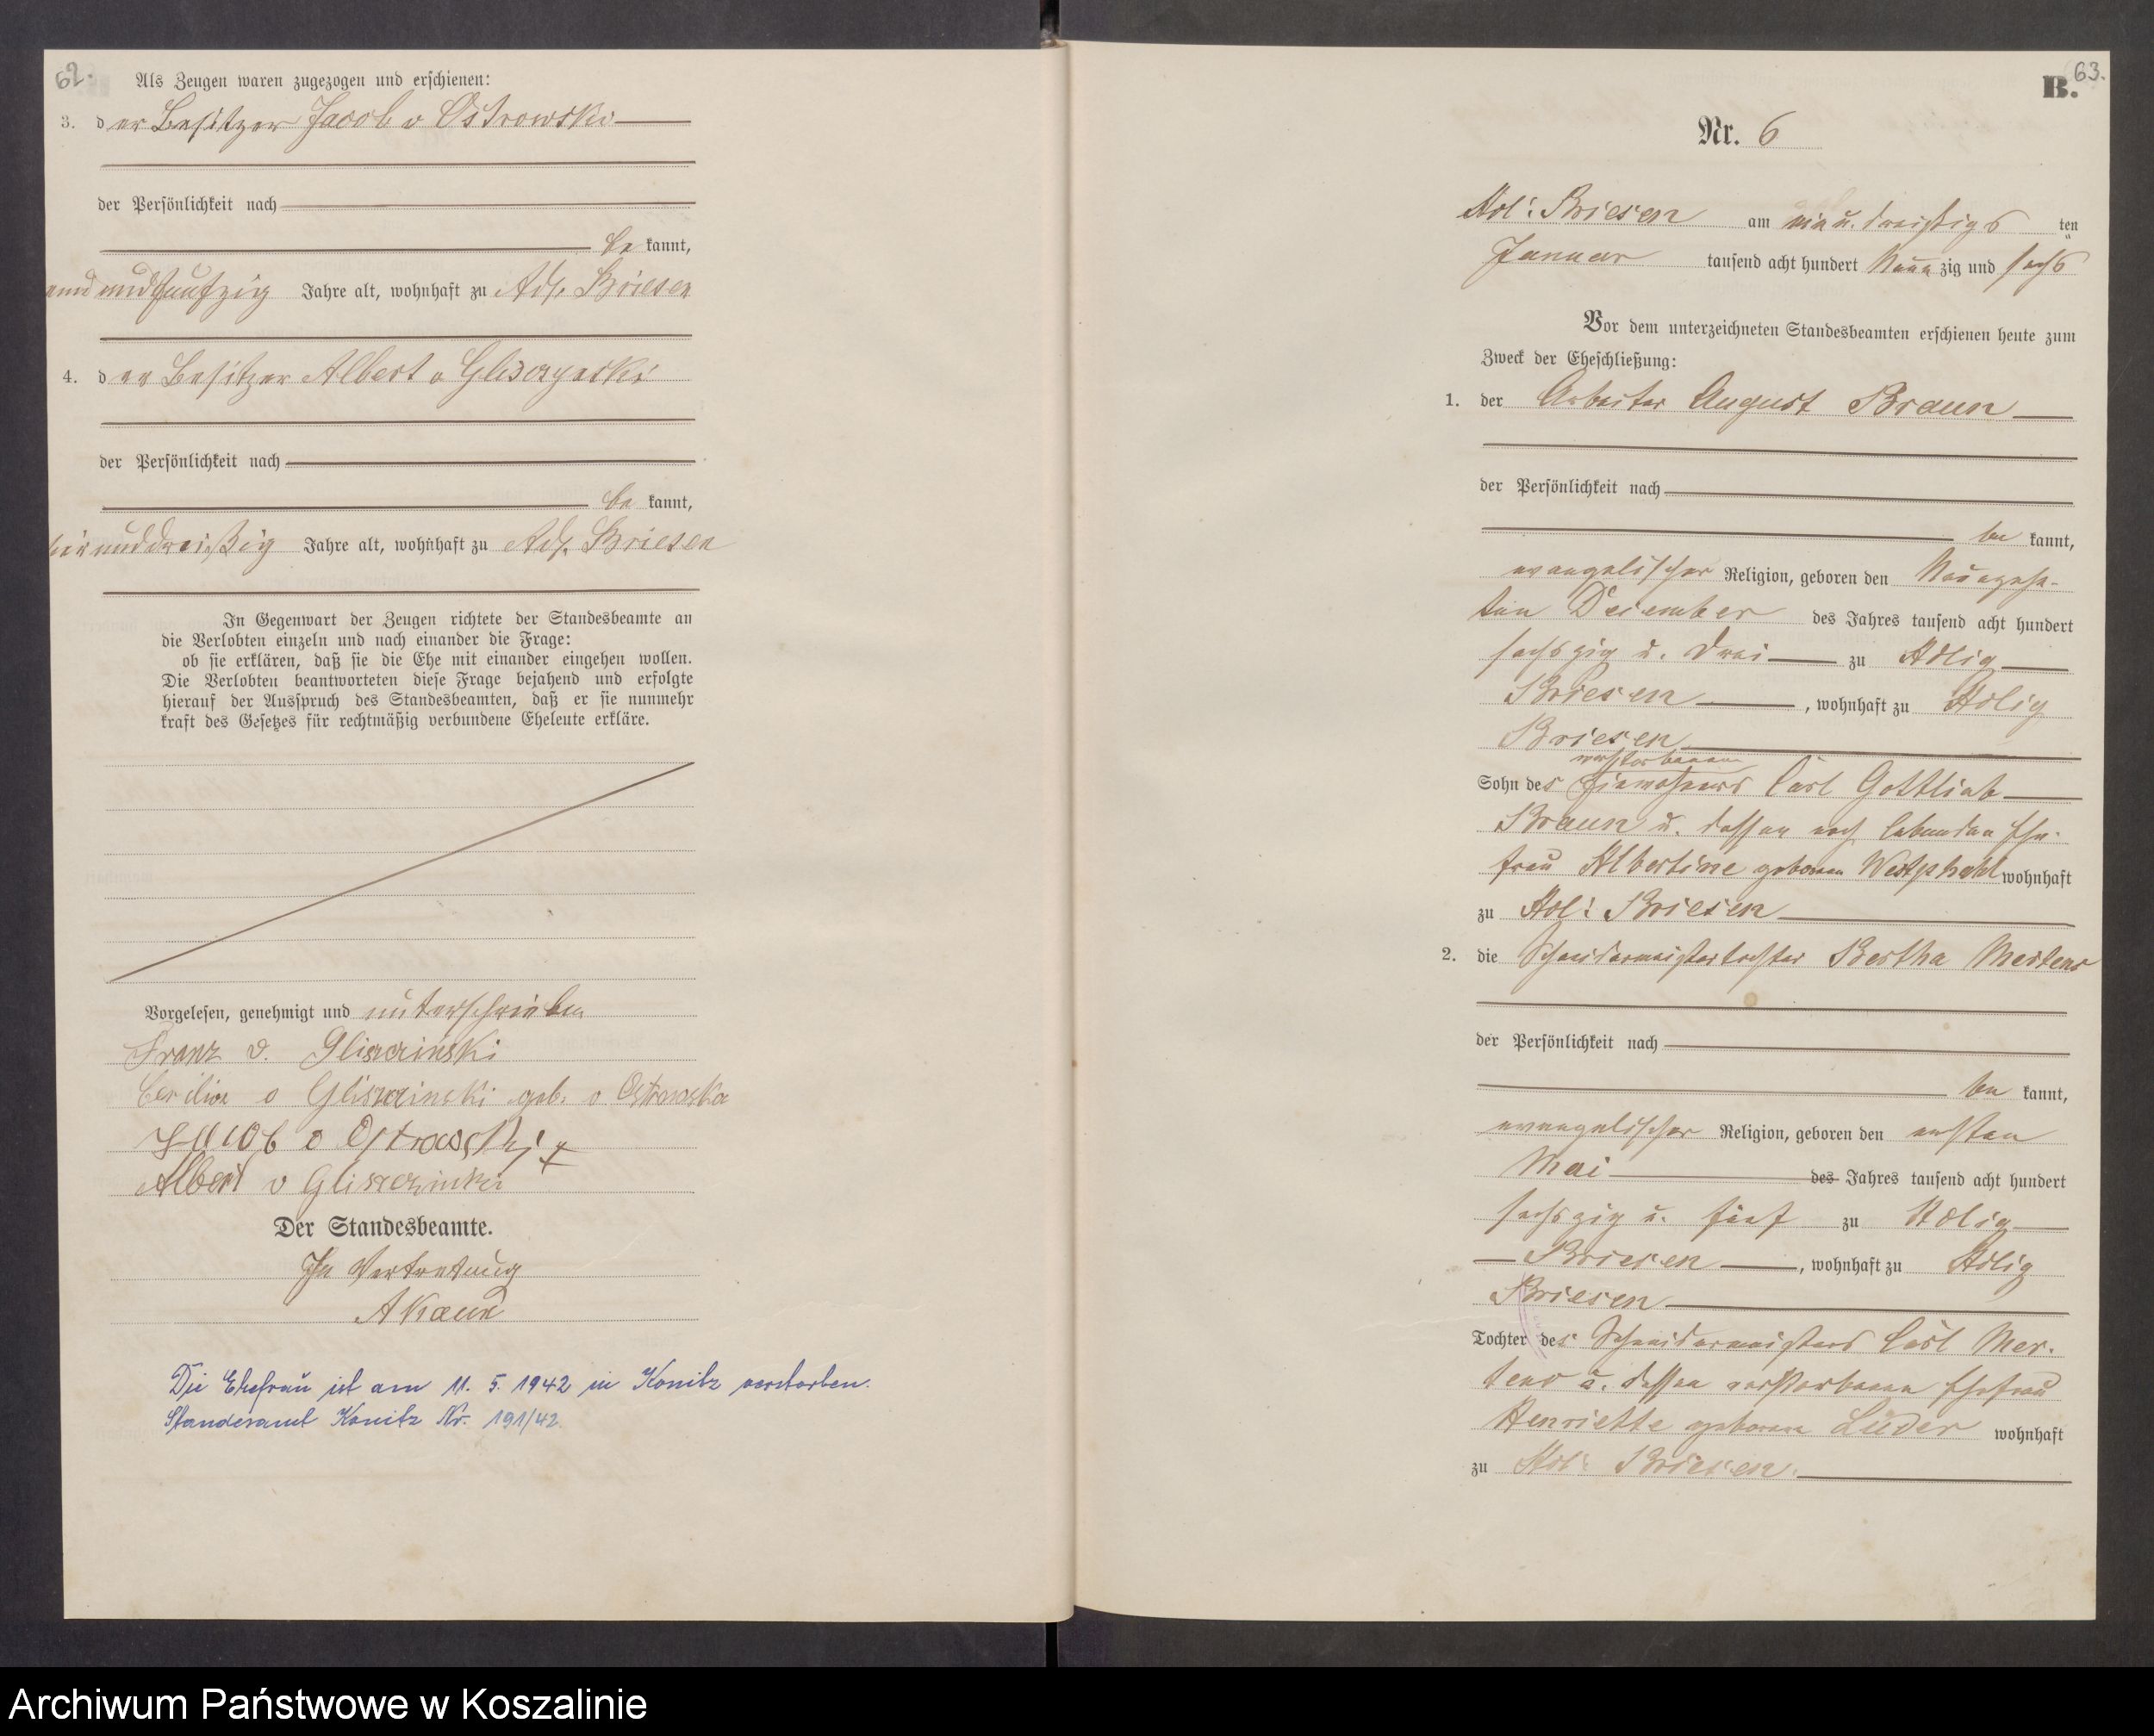 62.
Als Zeugen waren zugezogen und erschienen:
3. der Besitzer Jacob v Ostrowski
der Persönlichkeit nach
bekannt,
undfünfzig Jahre alt, wohnhaft zu Adl. Briesen
4. der Besitzer Albert v Gliszczynski
der Persönlichkeit nach
bekannt,
unddreißig Jahre alt, wohnhaft zu Adl. Briesen
In Gegenwart der Zeugen richtete der Standesbeamte an
die Verlobten einzeln und nach einander die Frage:
ob sie erklären, daß sie die Ehe mit einander eingehen wollen.
Die Verlobten beantworteten diese Frage bejahend und erfolgte
hierauf der Ausspruch des Standesbeamten, daß er sie nunmehr
kraft des Gesetzes für rechtmäßig verbundene Eheleute erkläre.
Vorgelesen, genehmigt und unterschrieben
Franz v. Gliszczinski
Cecilia v Gliszczinski geb. v Ostrowska
Jacob v Ostrowski
Albert v Gliszczinski
Der Standesbeamte.
In Vertretung
Die Ehefrau ist am 11. 5. 1942 in Konitz verstorben.
Standesamt Konitz Nr. 191/42.
63.
B.
Nr. 6
Adl: Briesen am ein u. dreißigsten
Januar tausend acht hundert Neunzig und sechs
Vor dem unterzeichneten Standesbeamten erschienen heute zum
Zweck der Eheschließung:
1. der Arbeiter August Braun
der Persönlichkeit nach
bekannt,
evangelischer Religion, geboren den Neunzehn-
ten December des Jahres tausend acht hundert
sechszig u. drei zu Adlig
Briesen, wohnhaft zu Adlig
Briesen
verstorbenen
Sohn des Carl Gottlieb
Braun u. dessen noch lebenden Ehe-
frau Albertine geborene Westphahl wohnhaft
zu Adl: Briesen
2. die Schneidermeistertochter Bertha Mertens
der Persönlichkeit nach
bekannt,
evangelischer Religion, geboren den ersten
Mai des Jahres tausend acht hundert
sechszig u. fünf zu Adlig
Briesen, wohnhaft zu Adlig
Briesen
Tochter des Schneidermeisters Carl Mer-
tens u. dessen verstorbenen Ehefrau
Henriette geborene Lüder wohnhaft
zu Adl: Briesen.
Archiwum Państwowe w Koszalinie